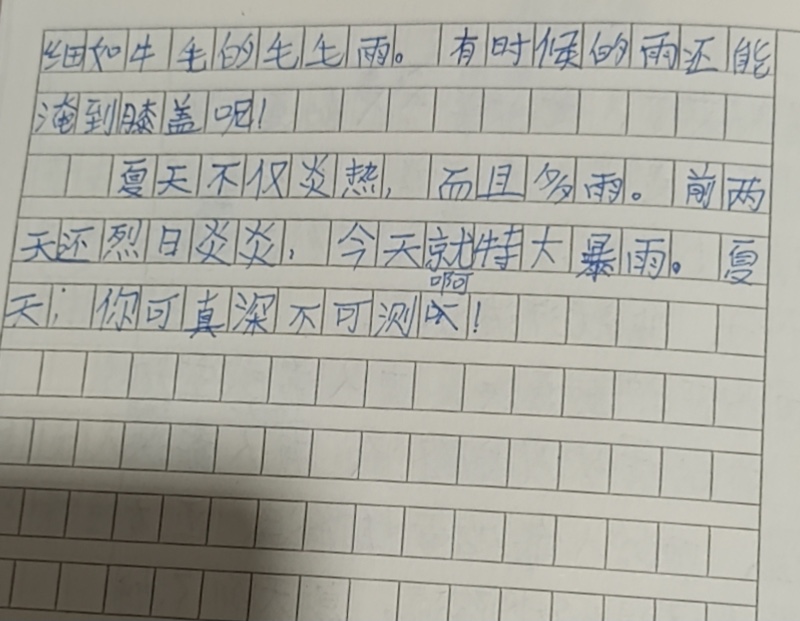 细如牛毛的毛毛雨。有时候的雨还能
淹到膝盖呢！
夏天不仅炎热，而且多雨。前两
天还烈日炎炎，今天就特大暴雨。夏
天；你可真深不可测啊！